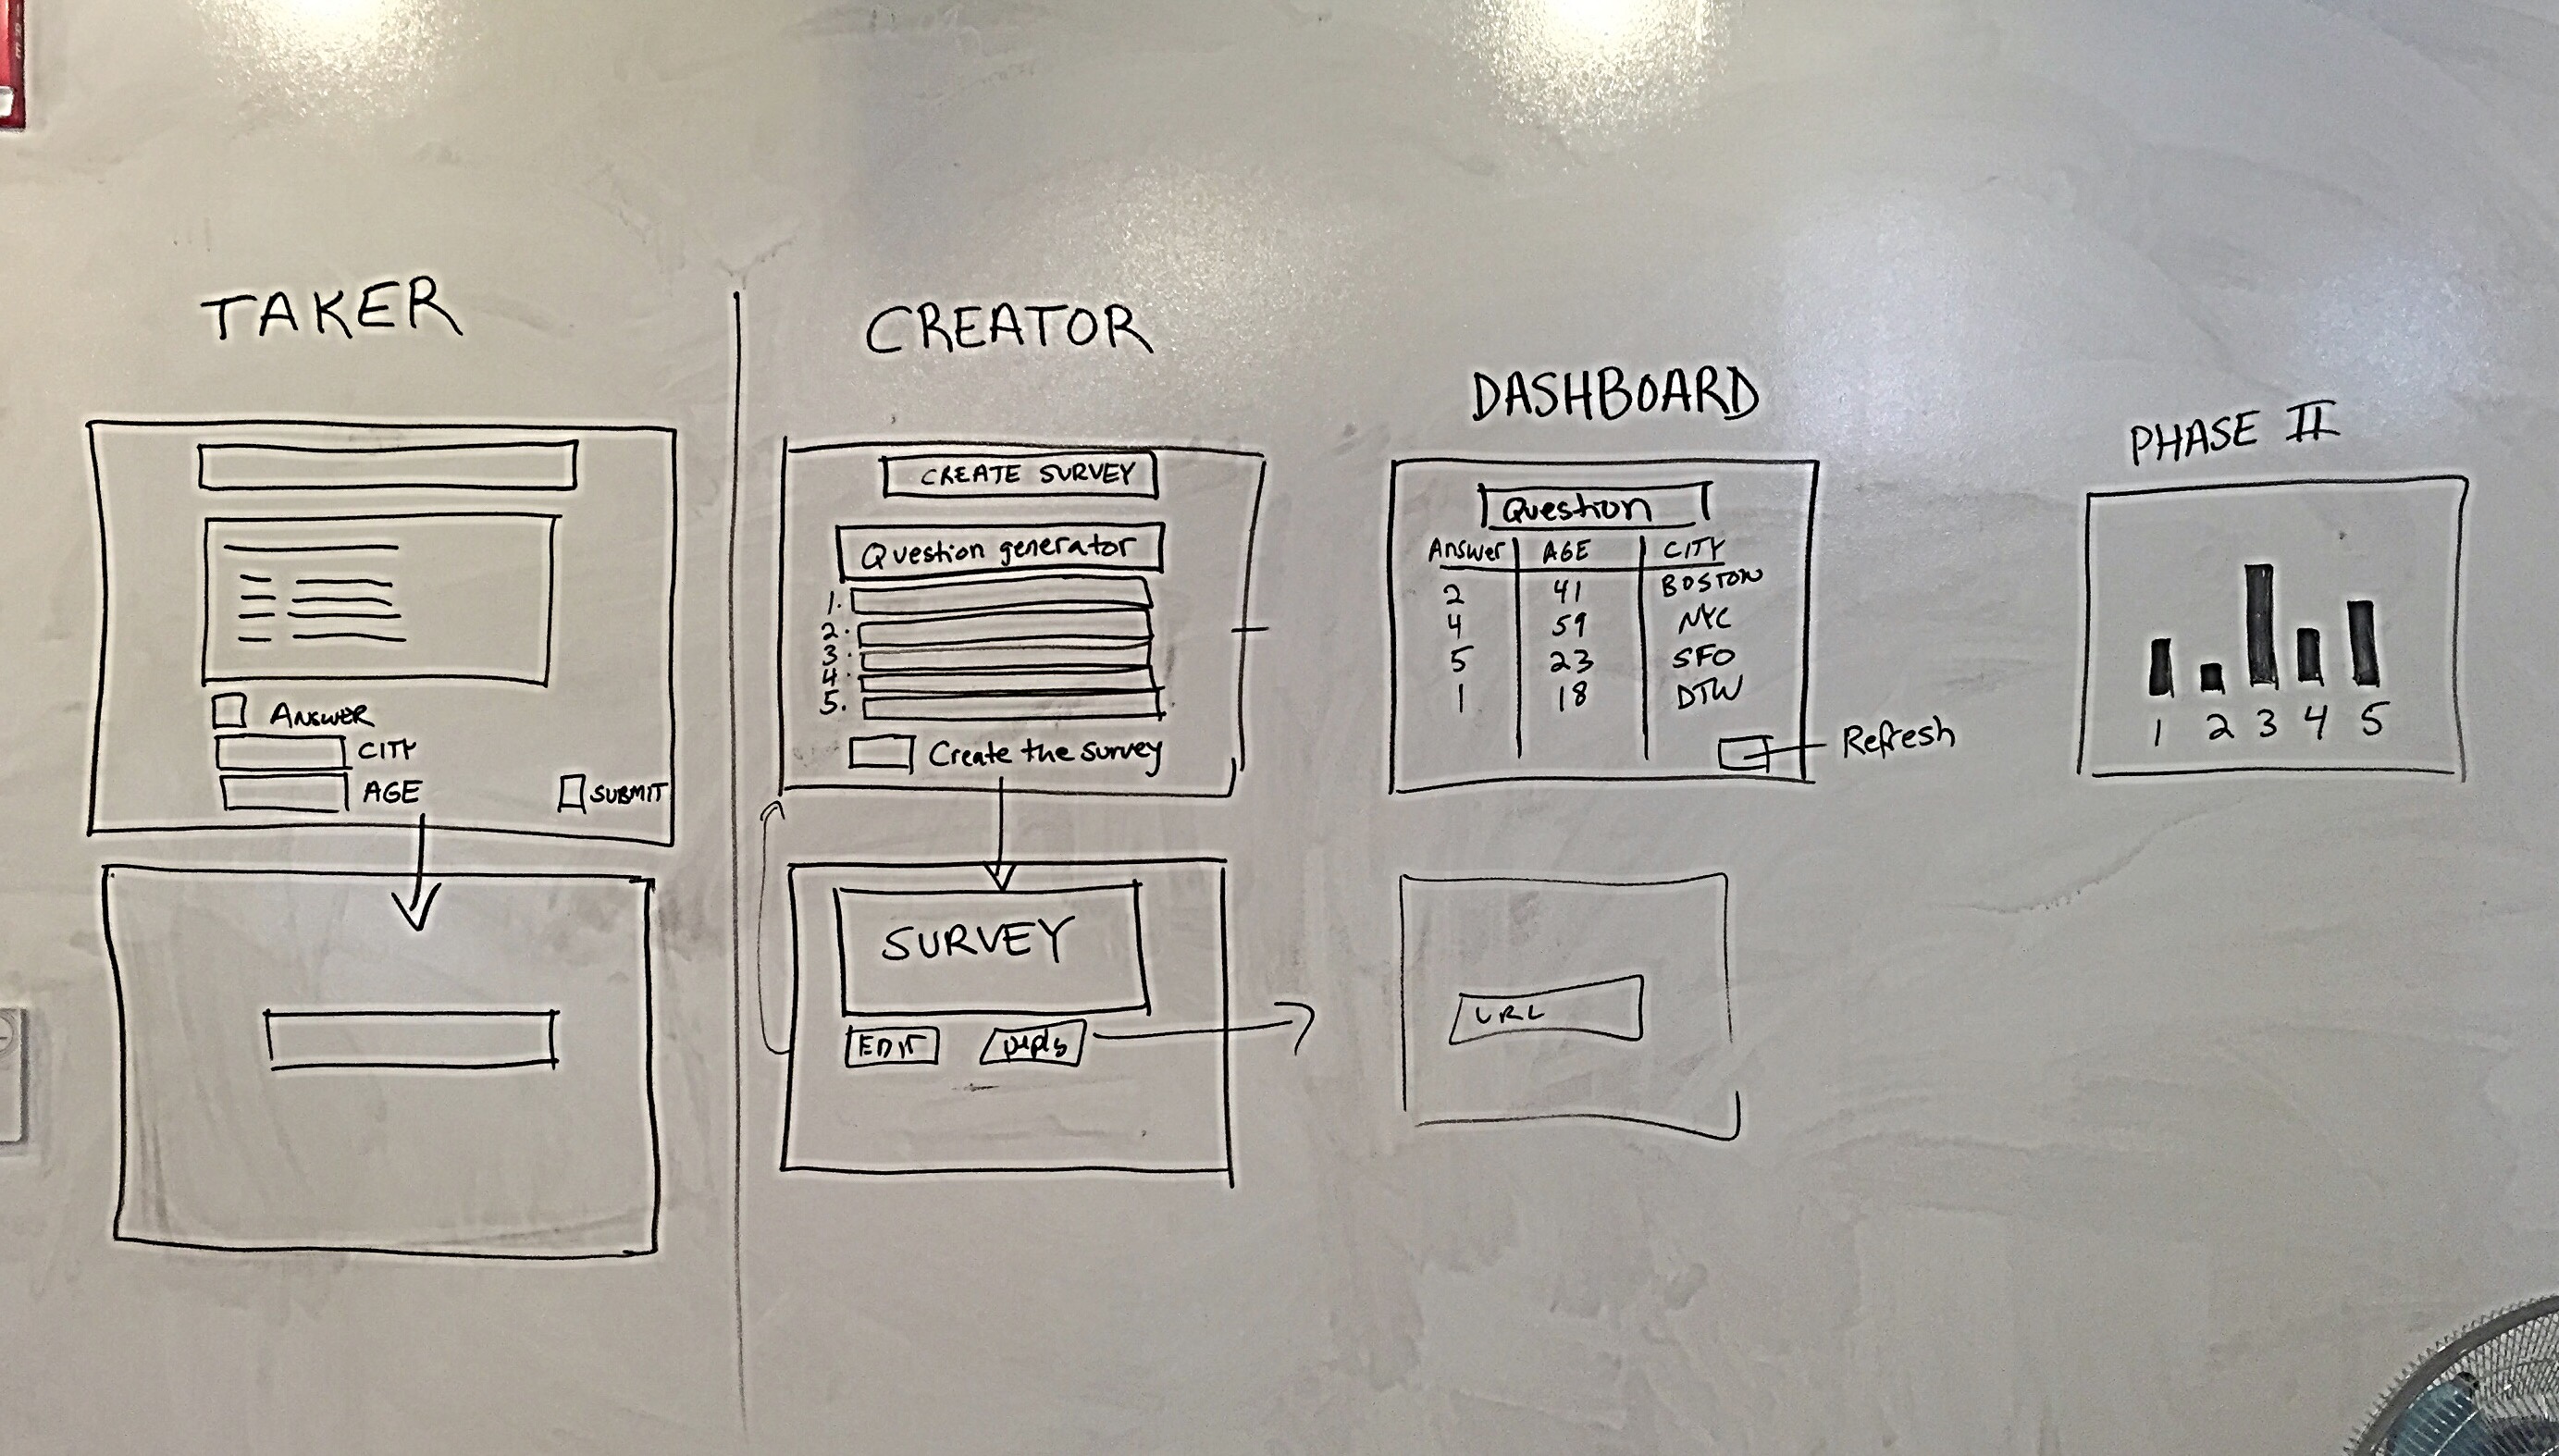 TAKER
ANSWER
CITY
AGE
SUBMIT
CREATOR
CREATE SURVEY
Question generator
1.
2.
3.
4.
5.
Create the survey
SURVEY
EDIT
DASHBOARD
Question
Answer AGE CITY
2 41 BOSTON
4 59 NYC
5 23 SFO
1 18 DTW
Refresh
URL
PHASE II
1 2 3 4 5